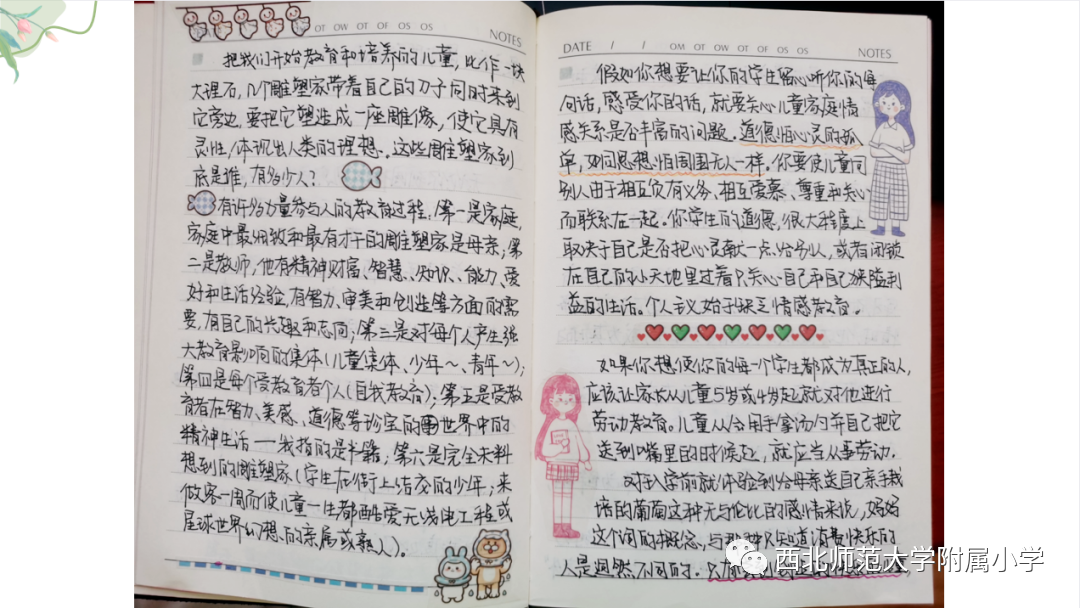 OT OW OT OF OS OS
NOTES
把我们开始教育和培养的儿童,比作一块
大理石,几个雕塑家带着自己的刀子同时来到
它旁边,要把它塑造成一座雕像,使它具有
灵性,体现出人类的理想。这些雕塑家到
底是谁,有多少人?
有许多力量参与人的教育过程,第一是家庭,
家庭中最细致和最有才干的雕塑家是母亲;第
二是教师,他有精神财富、智慧、知识、能力、爱
好和生活经验,有智力、审美和创造等方面的需
要,有自己的兴趣和志向;第三是对每个人产生强
大教育影响的集体(儿童集体、少年~、青年~);
第四是每个受教育者个人(自我教育);第五是受教
育者在智力、美感、道德等珍宝的世界中的
精神生活——我指的是书籍;第六是完全未料
想到的雕塑家(学生在街上结交的少年;来
做客一周而使儿童一生都酷爱无线电工程或
星球世界幻想的亲属或熟人)。
DATE / / OM OT OW OT OF OS OS
NOTES
假如你想要让你的学生留心听你的每
句话,感受你的话,就要关心儿童家庭情
感关系是否丰富的问题。道德怕心灵的孤
单,如同思想怕周围无人一样。你要使儿童同
别人由于相互负有义务、相互爱慕、尊重和关心
而联系在一起。你学生的道德,很大程度上
取决于自己是否把心灵献一点给别人,或者闭锁
在自己的小天地里过着只关心自己和自己狭隘利
益的生活。个人主义始于缺乏情感教育。
如果你想使你的每一个学生都成为真正的人,
应该让家长从儿童5岁或4岁起就对他进行
劳动教育。儿童从会用手拿汤勺并自己把它
送到嘴里的时候起,就应当从事劳动。
对于入学前就体验到给母亲送自己亲手栽
培的葡萄这种无与伦比的感情来说,妈妈
这个词的概念,与那种只知道消费快乐的
人是迥然不同的。
西北师范大学附属小学